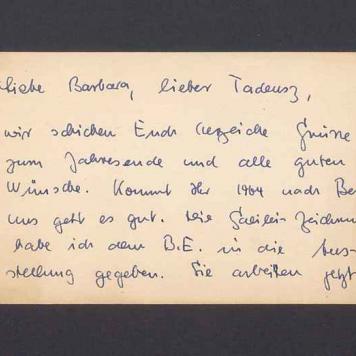 liebe Barbara, lieber Tadeusz,
wir schicken Euch herzliche Grüsse
zum Jahresende und alle guten
Wünsche. Kommt Ihr 1964 nach Be
uns geht es gut. Die Galilei-Zeichnu
habe ich dem B.E. in die Aus-
stellung gegeben. Sie arbeiten jetzt